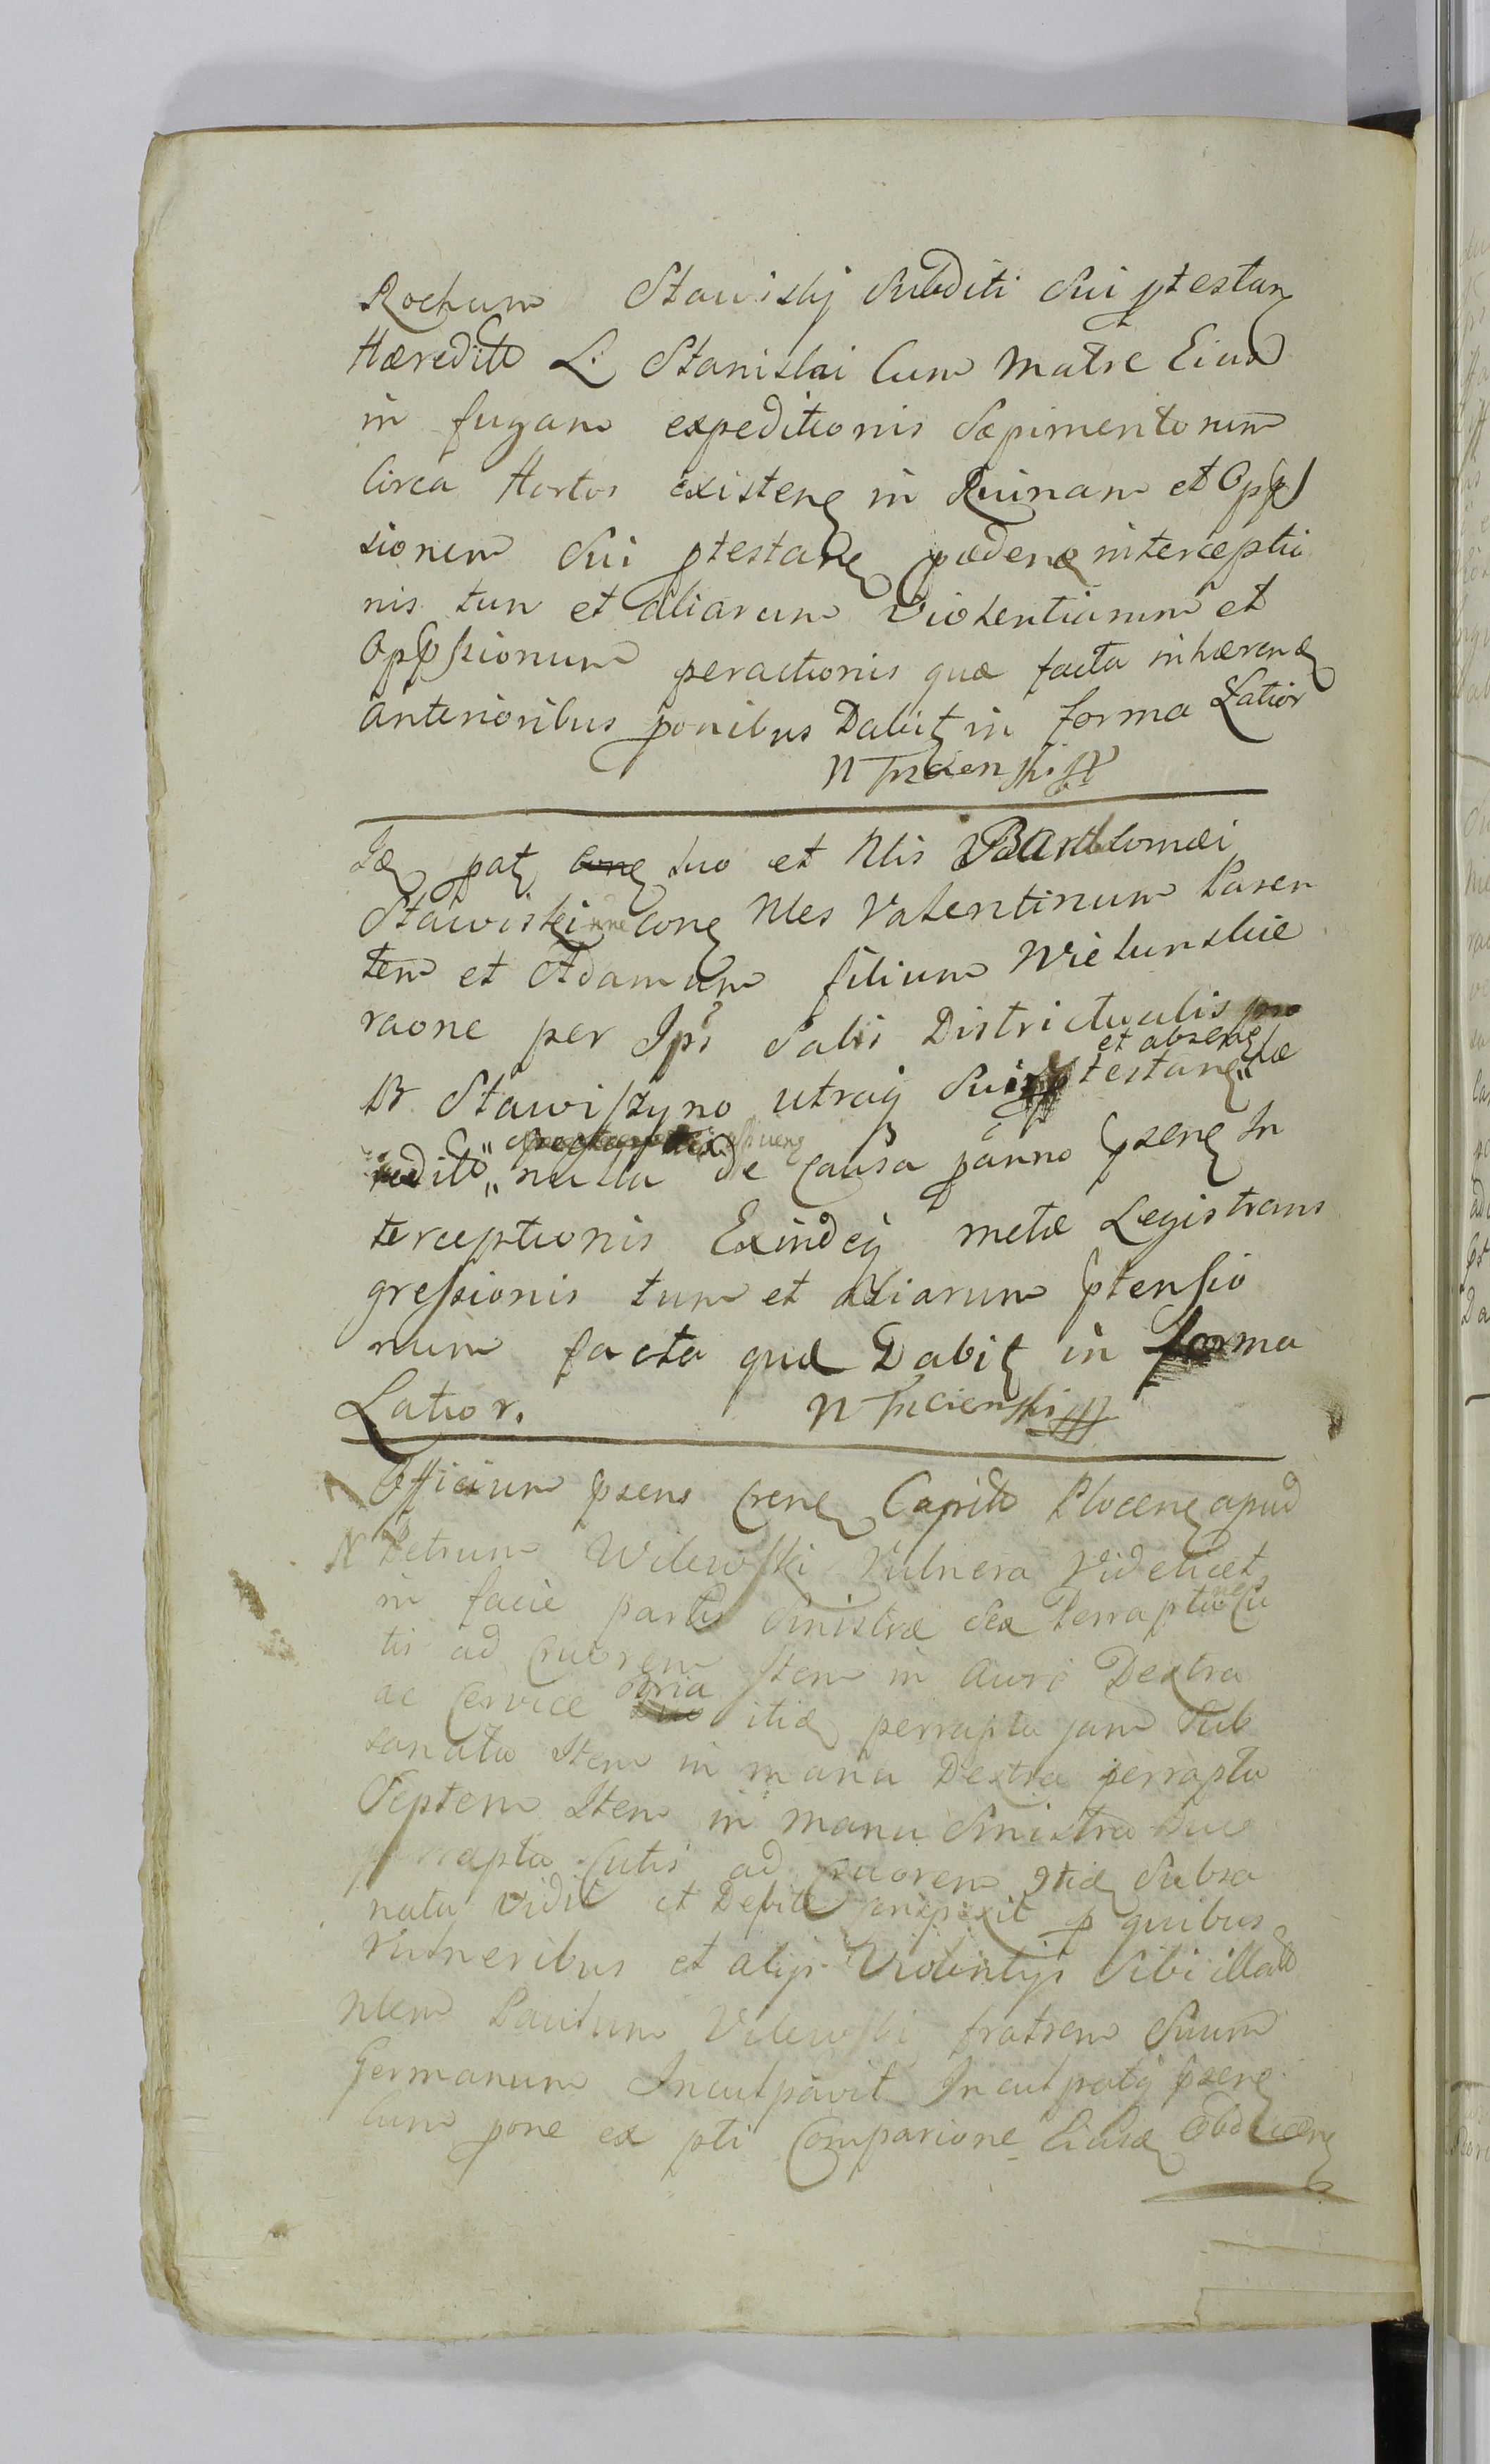 Rochum Stawiskij Subditi Sui ptestan
Hæredit L: Stanislai Cum Matre Eius
in fugam expeditionis Sæpimentorum
Circa Hortos existen in Ruinam et Opp
sionem Sui ptestan interceptio
nis tum et aliarum Violentiarum et
Opssionum peractionis quæ facta inhæren
anterioribus ponibus Dabit in forma Latior
N
pat suo et Nlis Bartlomæi
Stawiski con Nles Valentinum Paren
tem et Adamum filium Wielunskie
raone per Ips Salis Districtualis
et absen
B Stawiszyno utraq Sui testan hæ
redit nulla de Causa panno psen In
terceptionis Exindeq metæ Legis trans
gressionis tum et aliarum ptensio
num facta quæ Dabit in forma
Latior. N
Officium psens Cren Caprit Plocen apud
N Petrum Wilewski Vulnera Videlicet
in facie partis Sinistræ Sex Perrapta Cu
tis ad Cruorem Item in Aure Dextra
ac Cervice tria itid perrapta jam Sub
sanata Item in manu Dextra perrapta
Septem Item in manu Sinistra Duo
perrapta Cutis ad Cruorem Itid Subsa
nata Vidit et Debite conspexit p quibus
Vulneribus et alijs Violentijs Sibi illat
Nlem Paulum Vilewski fratrem Suum
Germanum Inculpavit Inculpatq psen
Cum pone ex pti Comparione Eiusd Obducen